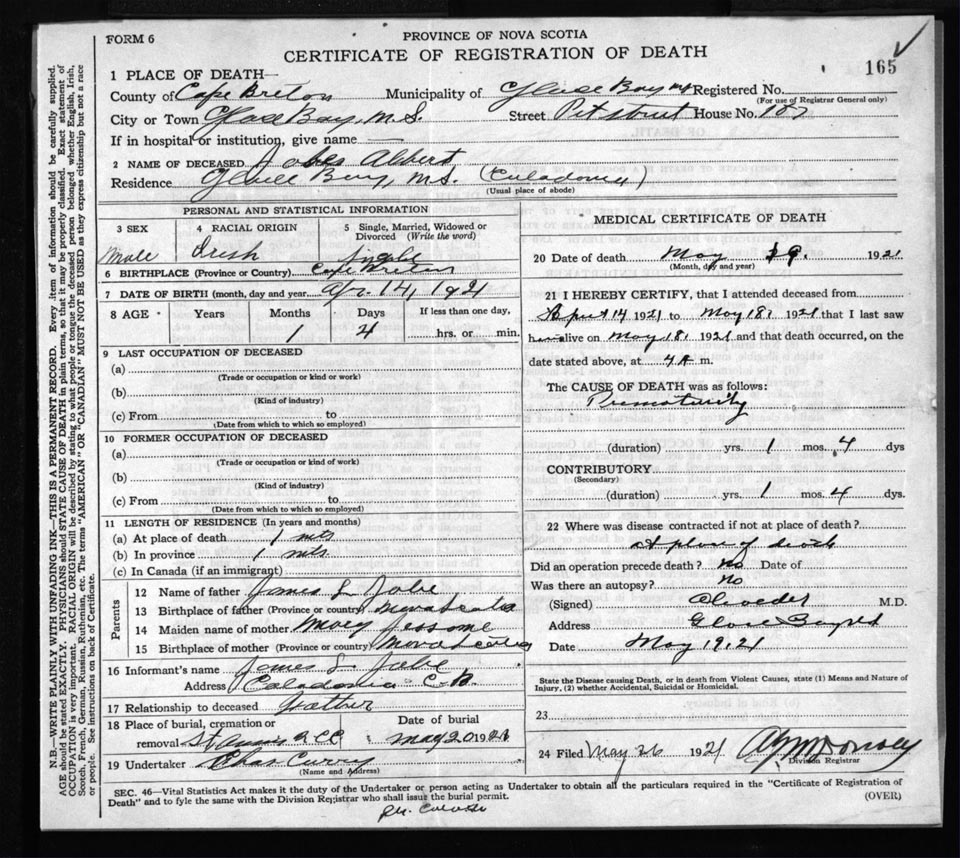 FORM 6
PROVINCE OF NOVA SCOTIA
CERTIFICATE OF REGISTRATION OF DEATH
165
1 PLACE OF DEATH—
County of Cape Breton Municipality of Glace Bay Registered No.
(For use of Registrar General only)
City or Town Glace Bay, N.S. Street Pit street House No. 107
If in hospital or institution, give name
2 NAME OF DECEASED Albert
Residence Glace Bay, N.S. (Caledonia)
(Usual place of abode)
PERSONAL AND STATISTICAL INFORMATION
3 SEX
Male
4 RACIAL ORIGIN
Irish
5 Single, Married, Widowed or Divorced (Write the word)
Single
6 BIRTHPLACE (Province or Country) Cape Breton
7 DATE OF BIRTH (month, day and year) Apr. 14, 1921
8 AGE Years Months Days If less than one day,
1 4 hrs. or min.
9 LAST OCCUPATION OF DECEASED
(a)
(Trade or occupation or kind or work)
(b)
(Kind of industry)
(c) From to
(Date from which to which so employed)
10 FORMER OCCUPATION OF DECEASED
(a)
(Trade or occupation or kind of work)
(b)
(Kind of industry)
(c) From to
(Date from which to which so employed)
11 LENGTH OF RESIDENCE (In years and months)
(a) At place of death 1 mts
(b) In province 1 mts.
(c) In Canada (if an immigrant)
Parents
12 Name of father James L
13 Birthplace of father (Province or country) Nova Scotia
14 Maiden name of mother Mary Jessome
15 Birthplace of mother (Province or country) Nova Scotia
16 Informant's name James L.
Address Caledonia C.B.
17 Relationship to deceased Father
18 Place of burial, cremation or removal St Anns R CC
Date of burial
May 20 1921
19 Undertaker Chas Curry
(Name and Address)
MEDICAL CERTIFICATE OF DEATH
20 Date of death May 19. 1921
(Month, day and year)
21 I HEREBY CERTIFY, that I attended deceased from
April 14 1921 to May 18, 1921 that I last saw
him alive on May 18, 1921 and that death occurred, on the
date stated above, at 4 A m.
The CAUSE OF DEATH was as follows:
Prematurity
(duration) yrs. 1 mos. 4 dys
CONTRIBUTORY
(Secondary)
(duration) yrs. 1 mos. 4 dys.
22 Where was disease contracted if not at place of death?
At place of death
Did an operation precede death? No Date of
Was there an autopsy? No
(Signed) M.D.
Address Glace Bay
Date May 19, 21
State the Disease causing Death, or in death from Violent Causes, state (1) Means and Nature of Injury, (2) whether Accidental, Suicidal or Homicidal.
23
24 Filed May 26 1921
Division Registrar
SEC. 46—Vital Statistics Act makes it the duty of the Undertaker or person acting as Undertaker to obtain all the particulars required in the "Certificate of Registration of
Death" and to fyle the same with the Division Registrar who shall issue the burial permit.
(OVER)
N.B.—WRITE PLAINLY WITH UNFADING INK—THIS IS A PERMANENT RECORD. Every item of information should be carefully supplied.
AGE should be stated EXACTLY. PHYSICIANS should STATE CAUSE OF DEATH in plain terms, so that it may be properly classified. Exact statement of
OCCUPATION is very important. RACIAL ORIGIN will be described by stating to what people or tongue the deceased person belonged whether English, Irish,
Scotch, French, German, Russian, Ruthenian, etc. The terms "AMERICAN" OR "CANADIAN" MUST NOT BE USED as they express citizenship but not a race
or people. See instructions on back of Certificate.